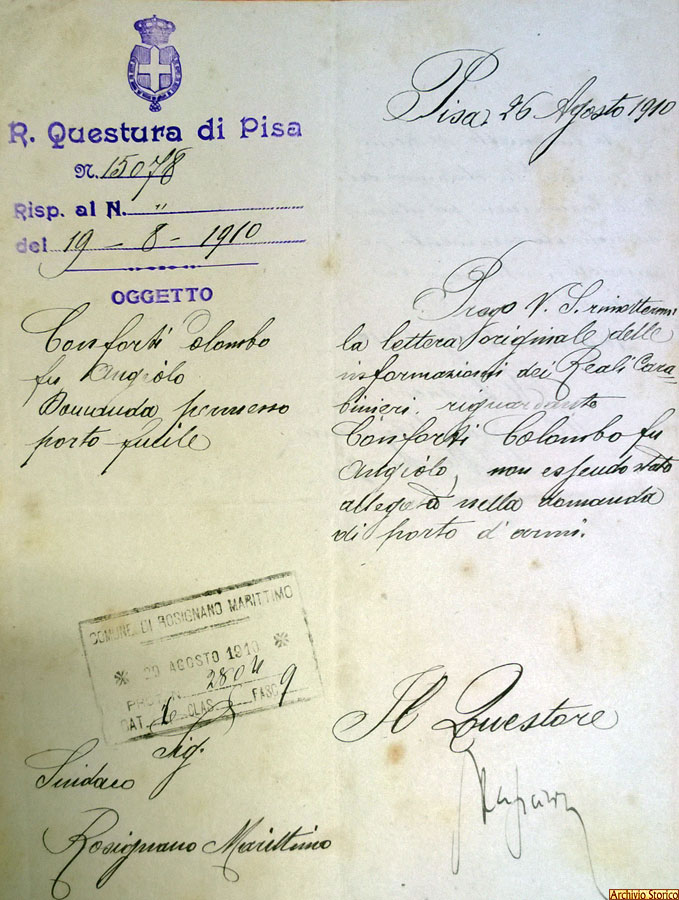 R. Questura di Pisa
N. 15078
Risp. al N. "
del 19 - 8 - 1910
OGGETTO
Conforti Colombo
fu Angiolo
Domanda permesso
porto fucile
Pisa, 26 Agosto 1910
Prego V. S. rimettermi
la lettera originale delle
informazioni dei Reali Cara-
binieri riguardante
Conforti Colombo fu
Angiolo, non essendo stata
allegata nella domanda
di porto d'armi.
COMUNE DI ROSIGNANO MARITTIMO
AGOSTO 1910
PROT. N. 2804
CAT. CLAS. FASC. 9
Il Questore
Sig.
Sindaco
Rosignano Marittimo
Archivio Storico